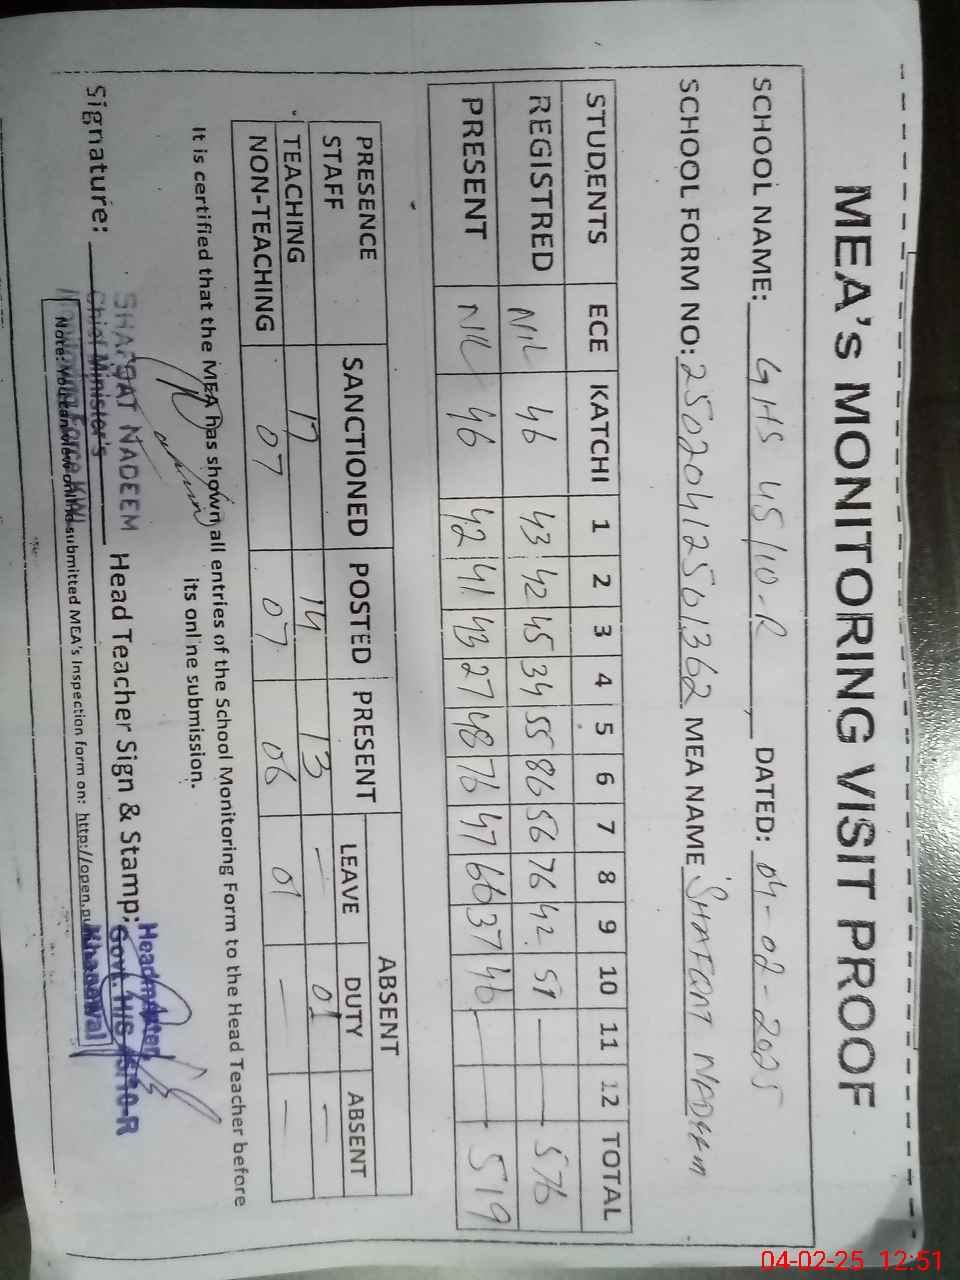 MEA's MONITORING VISIT PROOF
SCHOOL NAME: GHS 45/10-R, DATED: 04-02-2025
SCHOOL FORM NO: 25020412561362 MEA NAME SHAFQAT NADEEM
STUDENTS ECE KATCHI 1 2 3 4 5 6 7 8 9 10 11 12 TOTAL
REGISTRED NIL 46 43 42 45 34 55 86 56 76 42 51 — 576
PRESENT NIL 46 42 41 43 27 48 76 47 66 37 46 — 519
PRESENCE STAFF SANCTIONED POSTED PRESENT ABSENT
LEAVE DUTY ABSENT
TEACHING 17 14 13 — 01 —
NON-TEACHING 07 07 06 01 — —
It is certified that the MEA has shown all entries of the School Monitoring Form to the Head Teacher before
its online submission.
Signature: Head Teacher Sign & Stamp:
SHAFQAT NADEEM
Chief Minister's
Monitoring Force KWL
Headmaster,
Govt. H/S 45/10-R
Khanewal
Note: You can view online submitted MEA's Inspection form on: http://open.pu
04-02-25 12:51